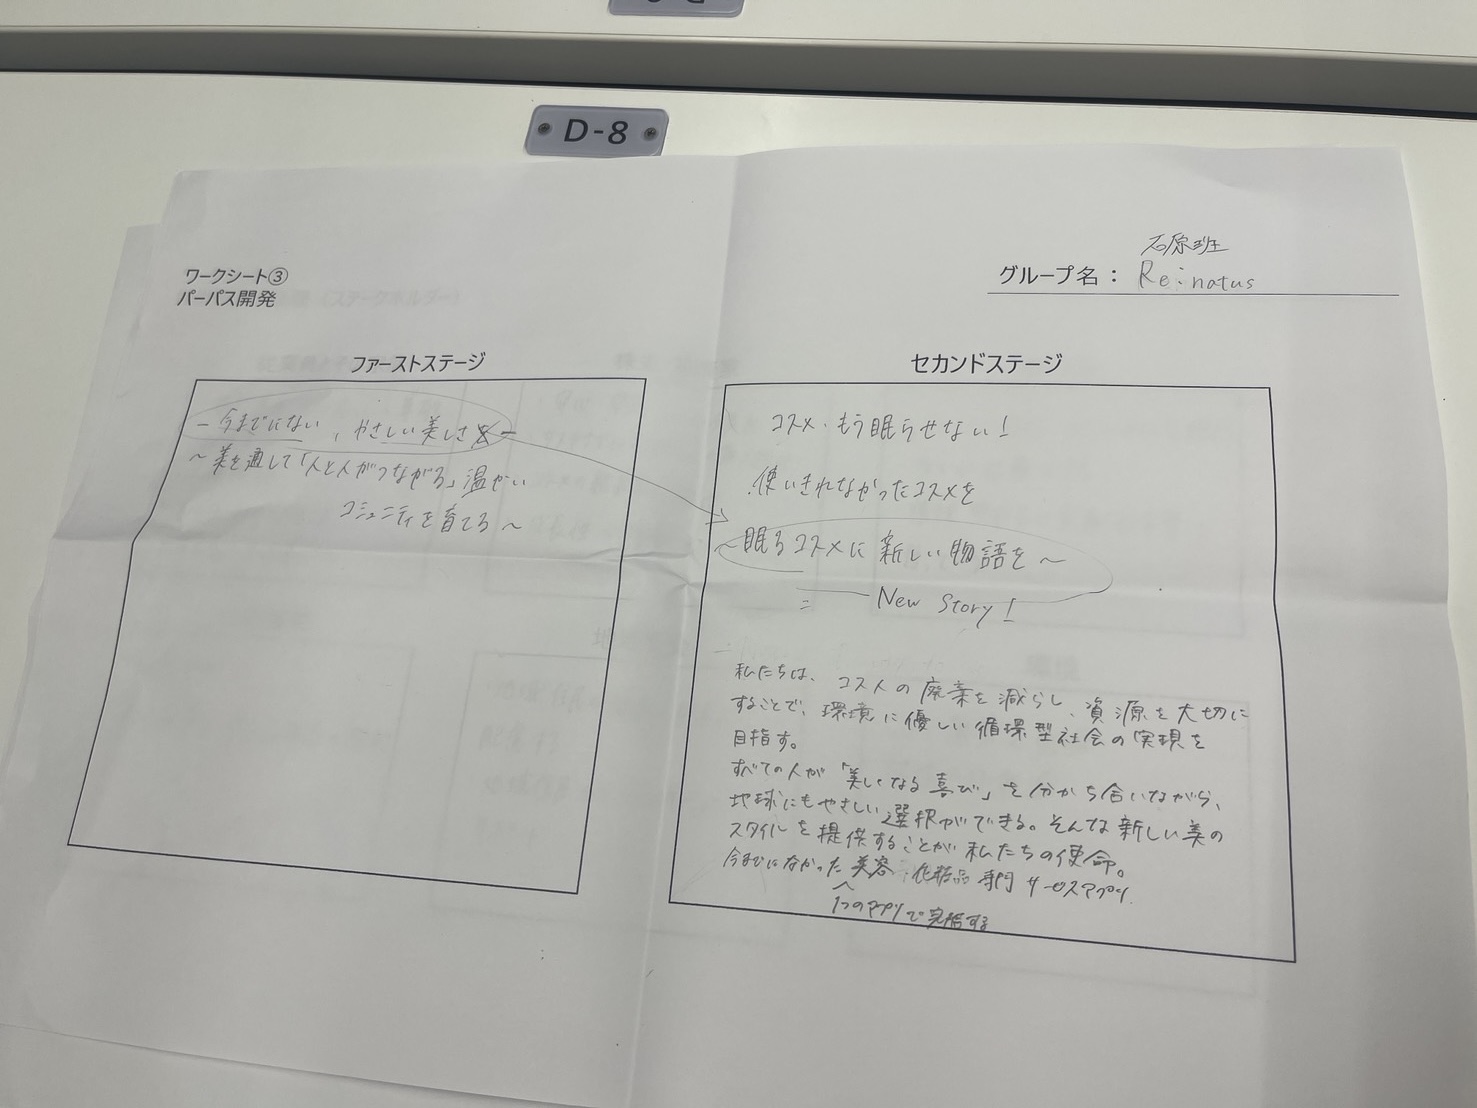 D-8
ワークシート③
パーパス開発
石原班
グループ名： Re:natus
ファーストステージ
- 今までにない、やさしい美しさ -
～美を通して「人と人がつながる」温かい
コミュニティを育てる～
セカンドステージ
コスメ、もう眠らせない!
使いきれなかったコスメを
～眠るコスメに新しい物語を～
= New Story!
私たちは、コスメの廃棄を減らし、資源を大切に
することで、環境に優しい循環型社会の実現を
目指す。
すべての人が「美しくなる喜び」を分かち合いながら、
地球にもやさしい選択ができる。そんな新しい美の
スタイルを提供することが私たちの使命。
今までになかった美容 化粧品専門サービスアプリ.
1つのアプリで完結する